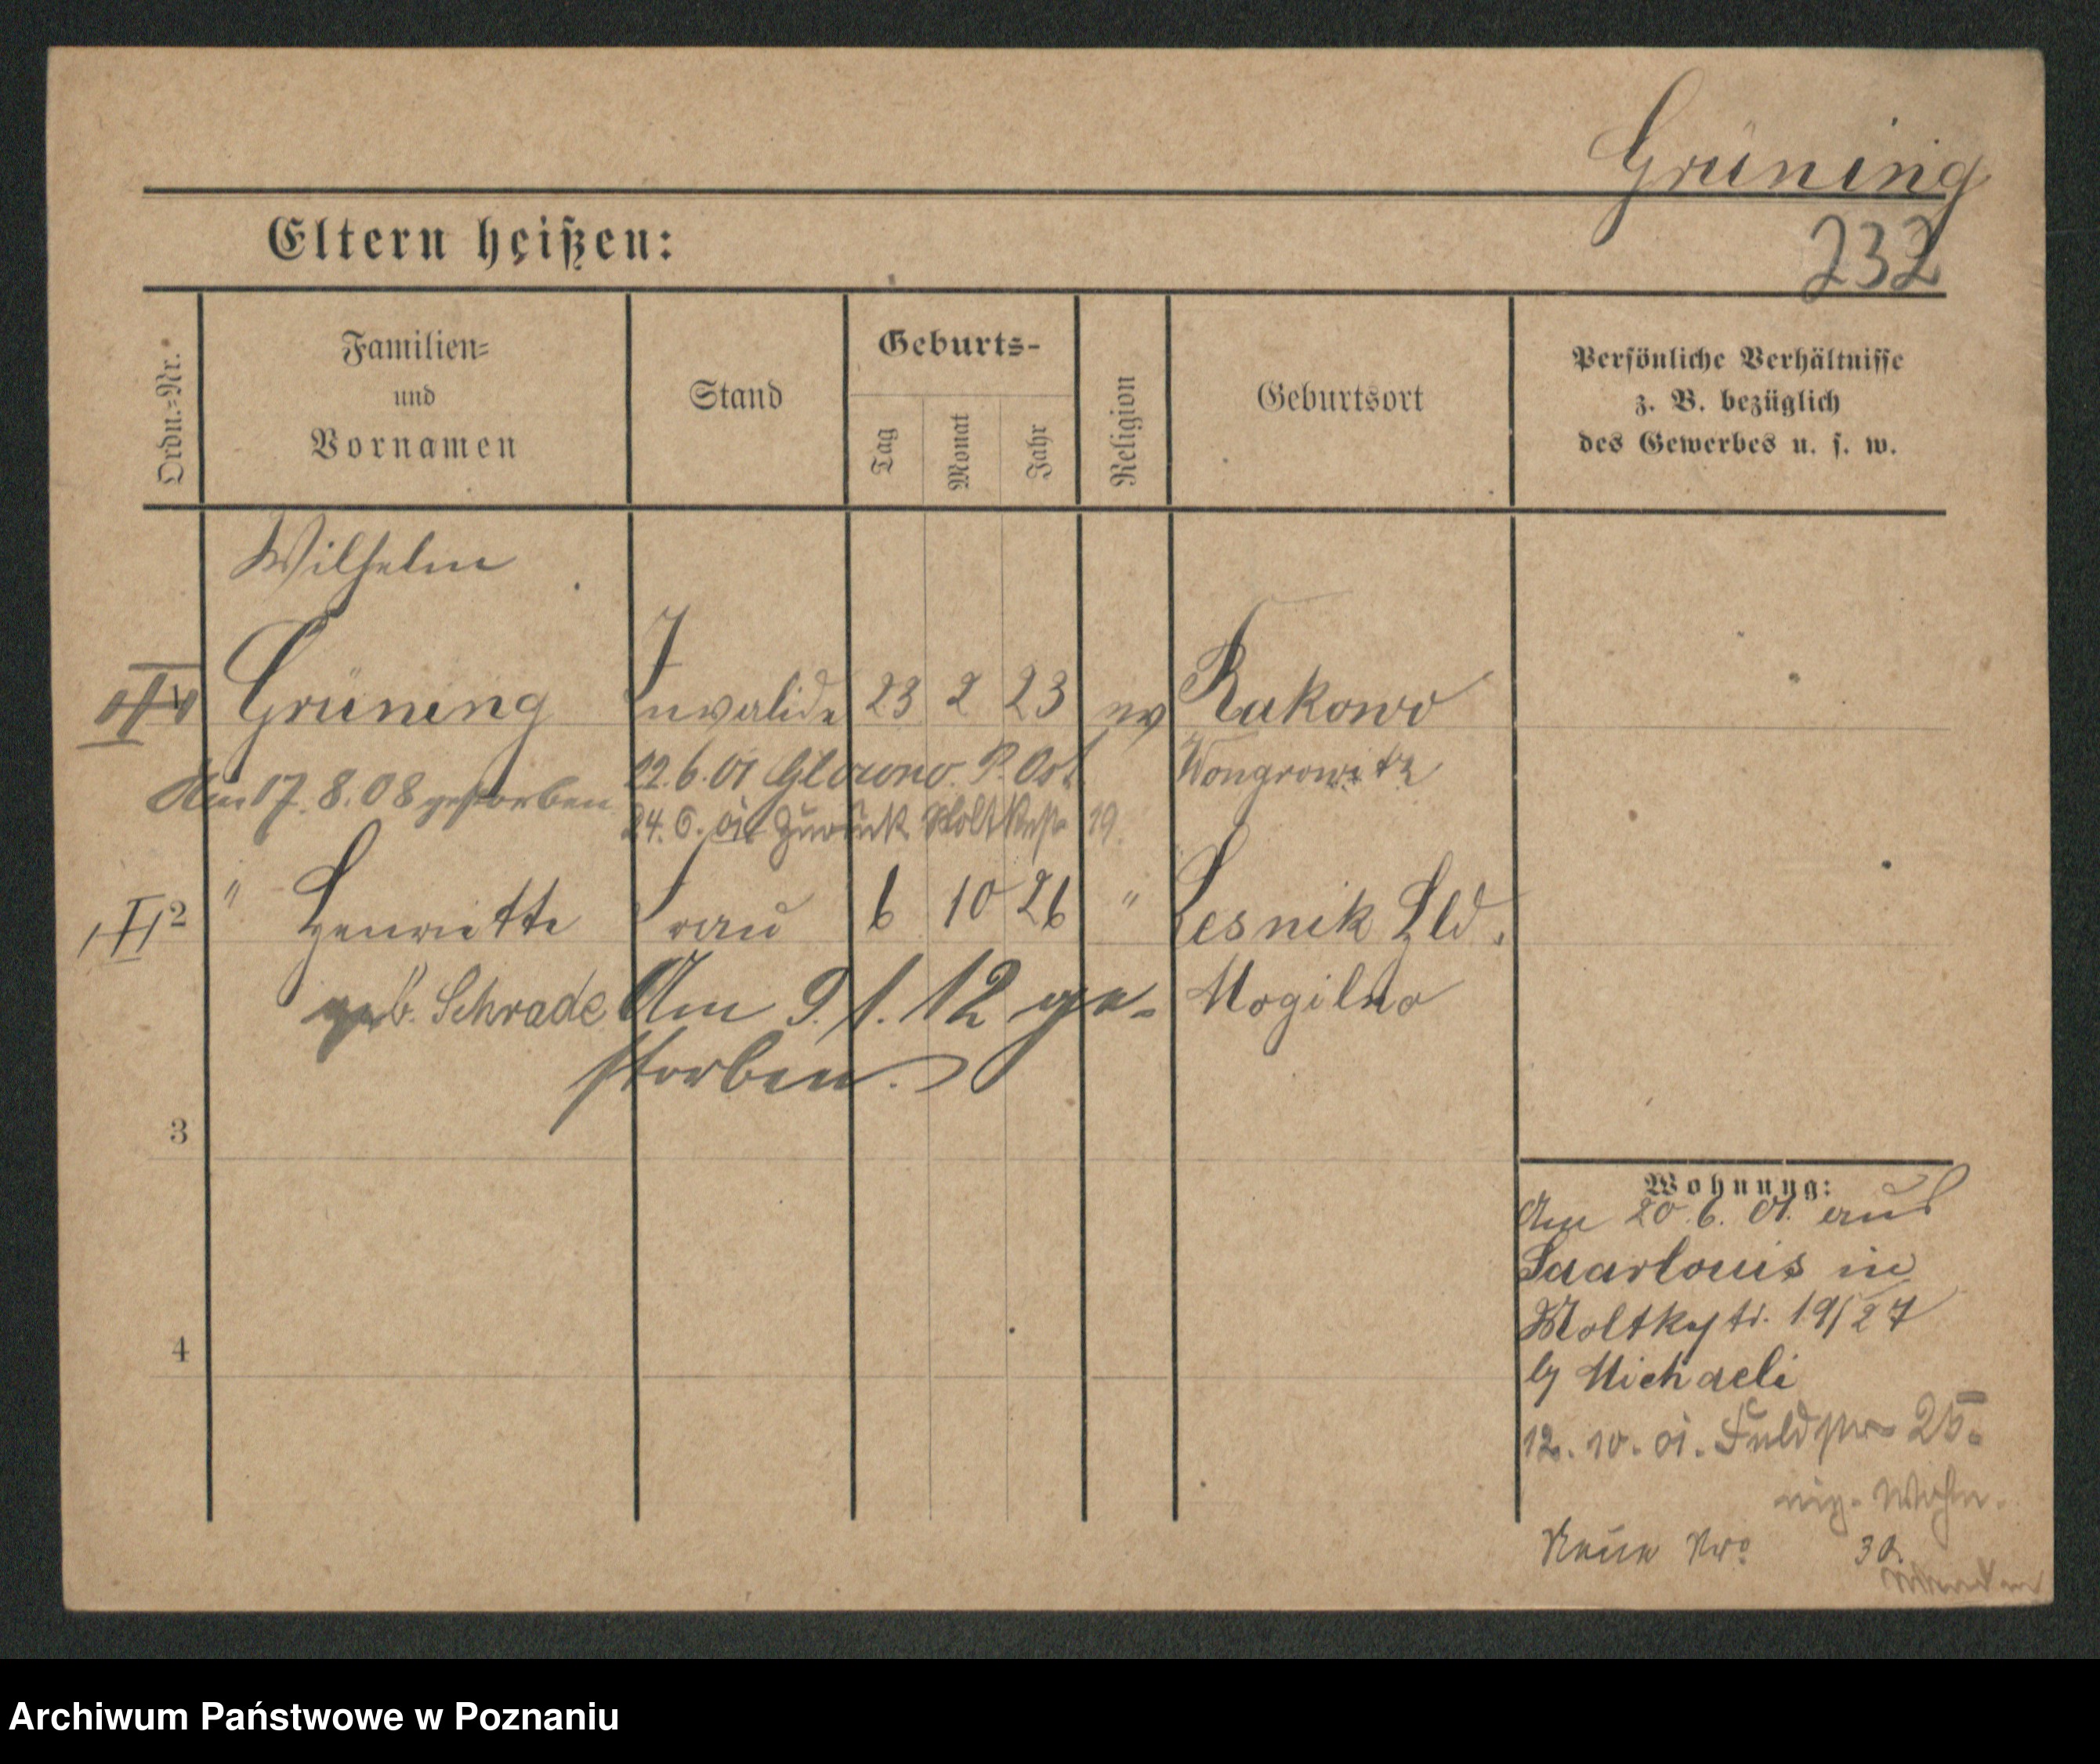 Grüning
232
Eltern heißen:
Ordn.=Nr.
Familien=
und
Vornamen
Stand
Geburts-
Tag
Monat
Jahr
Religion
Geburtsort
Persönliche Verhältnisse
z. B. bezüglich
des Gewerbes u. s. w.
Wilhelm
Grüning Invalide 23 2 23 ev Rakowo
22.6.01 Glowno P. Ost Wongrowitz
Am 17.8.08 gestorben
24.6.01 zurück Moltkestr 19.
II 2 " Henriette Frau 6 10 26 " Lesnik Hld.
geb. Schrade Am 9.1.12 ge- Mogilno
storben.
3
4
Wohnung:
Am 20.6.01. aus
Saarlouis in
Moltkestr. 19/27
b/ Michaeli
12.10.01. Feldstr 25.
eig. Wohn.
Neue Nro 30.
Archiwum Państwowe w Poznaniu